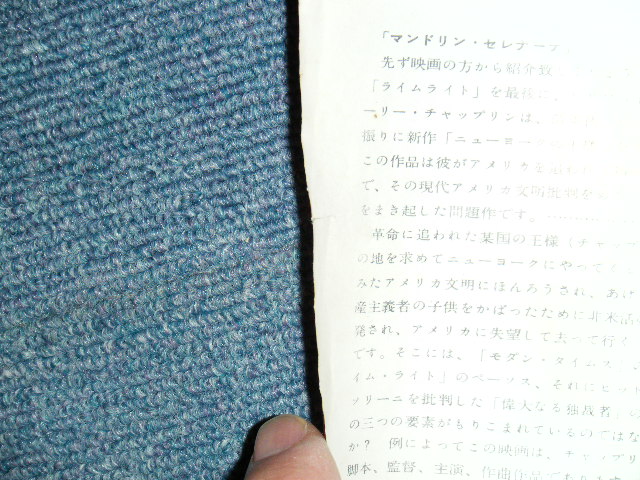 「マンドリン・セレナーデ
先ず映画の方から紹介致
「ライムライト」を最後に
ーリー・チャップリンは、
振りに新作「ニューヨー
この作品は彼がアメリカを
で、その現代アメリカ文明批判を
をまき起した問題作です。………
革命に追われた某国の王様（チャッ
の地を求めてニューヨークにやってく
みたアメリカ文明にほんろうされ、あげ
産主義者の子供をかばったために非米活
発され、アメリカに失望して去って行く
です。そこには、「モダン・タイムス」
イム・ライト」のペーソス、それにヒッ
ソリーニを批判した「偉大なる独裁者」
の三つの要素がもりこまれているのではな
か？ 例によってこの映画は、チャップリ
脚本、監督、主演、作曲作品であります